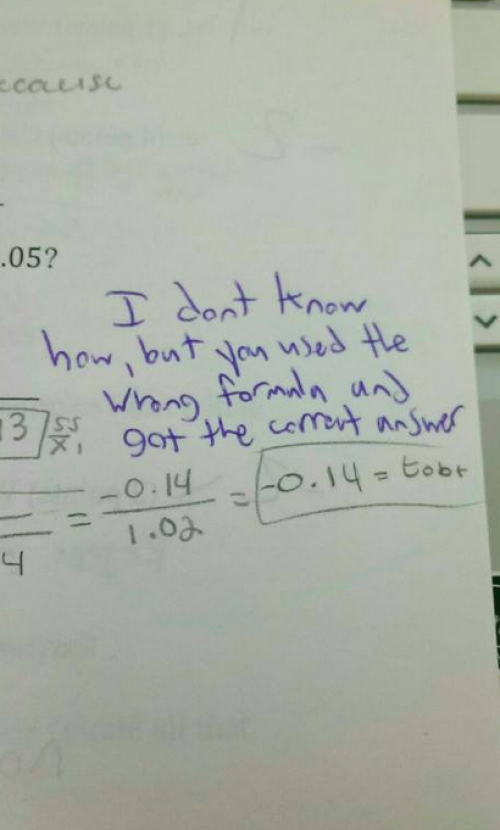 ecause
.05?
I dont know
how, but you used the
wrong formula and
got the correct answer
13 SS
X₁
-0.14
= = -0.14 = tobt
1.02
4